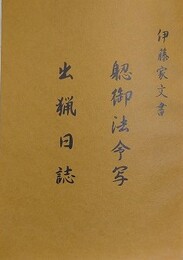 伊藤家文書
御法令写
出猟日誌